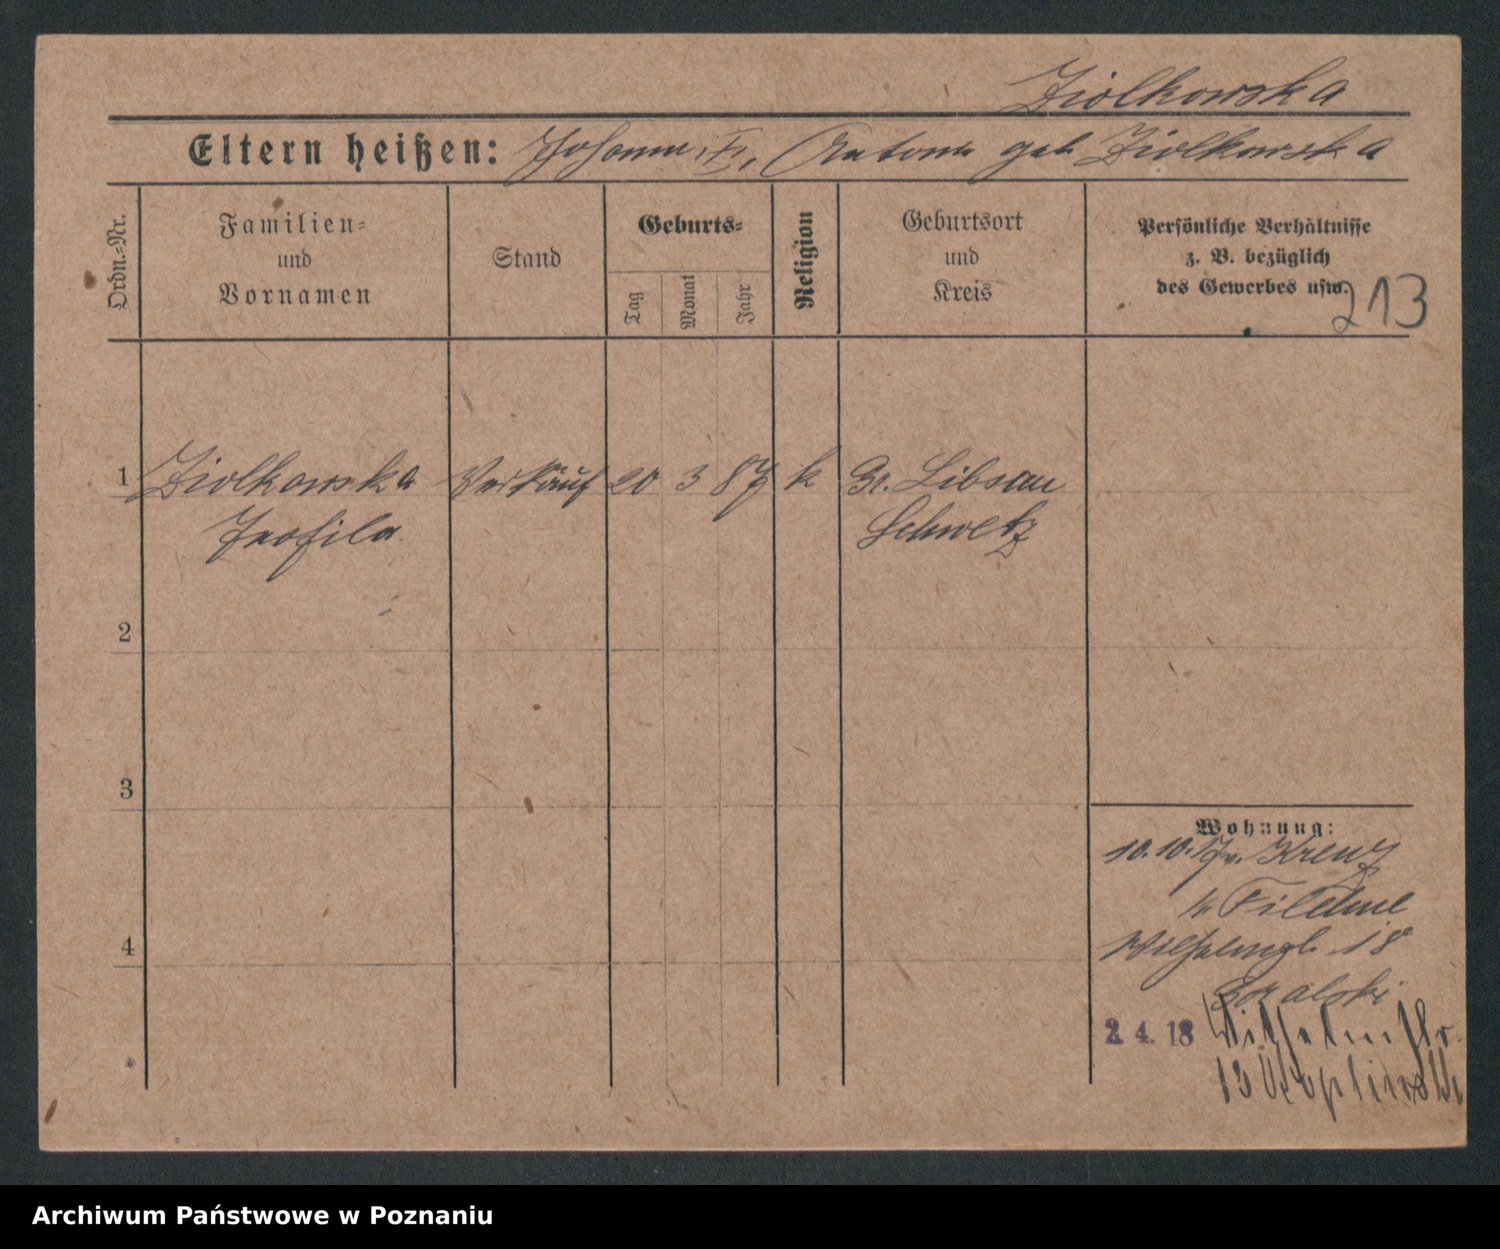 Ziolkowska
Eltern heißen: Johann Z., Antonie geb Ziolkowska
Ordn.=Nr.
Familien=
und
Vornamen
Stand
Geburts=
Tag
Monat
Jahr
Religion
Geburtsort
und
Kreis
Persönliche Verhältnisse
z. B. bezüglich
des Gewerbes usw.
213
1 Ziolkowska Verkäuf 20 3 87 k Gr. Libsau
Teofila Schwetz
2
3
4
Wohnung:
10.10.17 v. Kreuz
Filehne
Wilhelmpl. 18
2. 4. 18 Wilhelmstr.
13
Archiwum Państwowe w Poznaniu